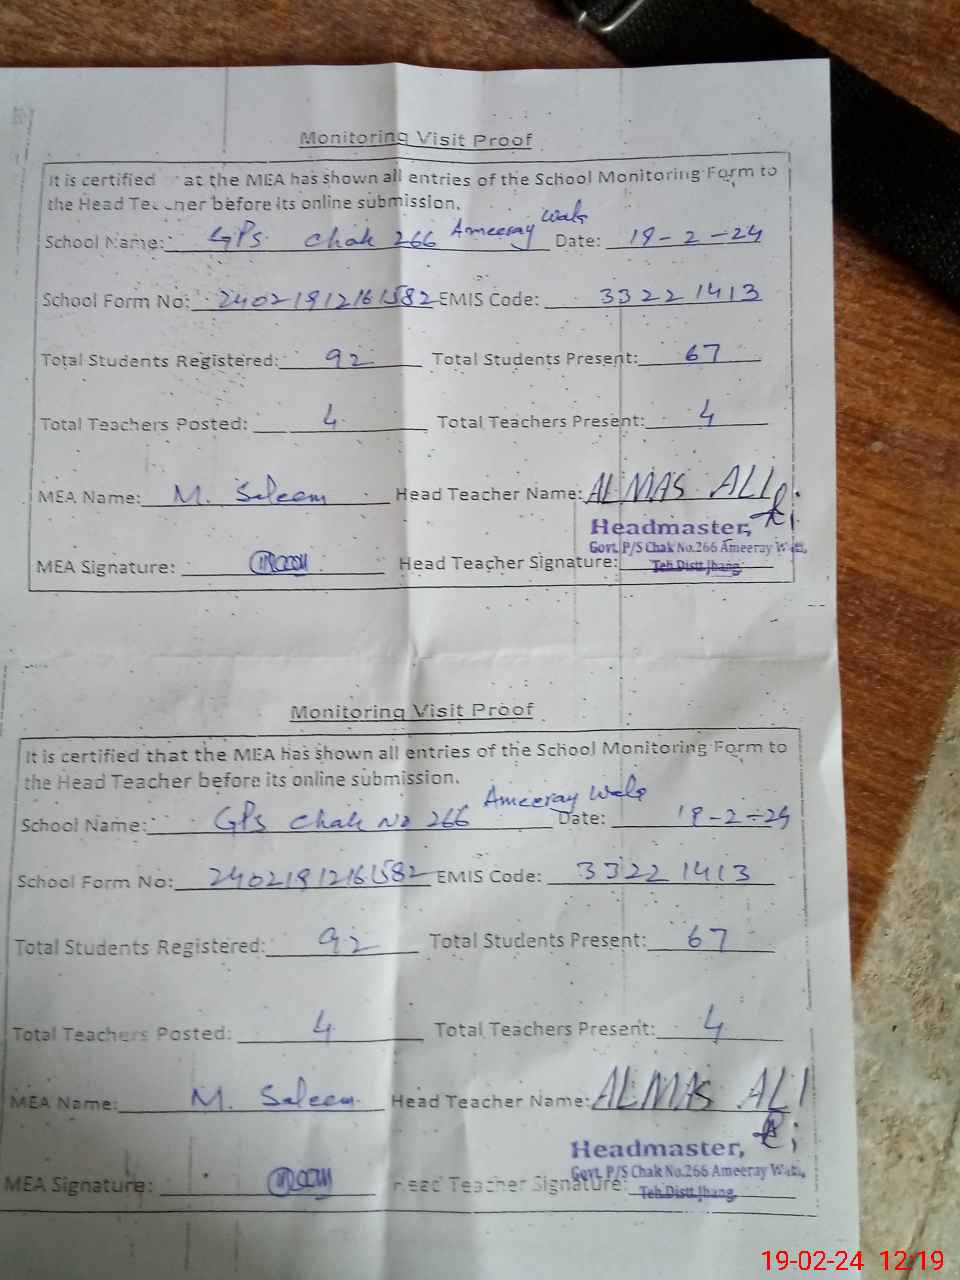 Monitoring Visit Proof
It is certified at the MEA has shown all entries of the School Monitoring Form to
the Head Teacher before its online submission.
School Name: GPS Chak 266 Ameeray Wala Date: 19-2-24
School Form No: 24021912161582 EMIS Code: 33221413
Total Students Registered: 92 Total Students Present: 67
Total Teachers Posted: 4 Total Teachers Present: 4
MEA Name: M. Saleem Head Teacher Name: ALMAS ALI
Headmaster,
Govt. P/S Chak No.266 Ameeray Wala,
MEA Signature: Head Teacher Signature: Teh Distt.Jhang.
Monitoring Visit Proof
It is certified that the MEA has shown all entries of the School Monitoring Form to
the Head Teacher before its online submission.
School Name: GPS Chak No 266 Ameeray Wala Date: 19-2-24
School Form No: 24021912161582 EMIS Code: 33221413
Total Students Registered: 92 Total Students Present: 67
Total Teachers Posted: 4 Total Teachers Present: 4
MEA Name: M. Saleem Head Teacher Name: ALMAS ALI
Headmaster,
Govt. P/S Chak No.266 Ameeray Wala,
MEA Signature: Head Teacher Signature: Teh Distt.Jhang.
19-02-24 12:19